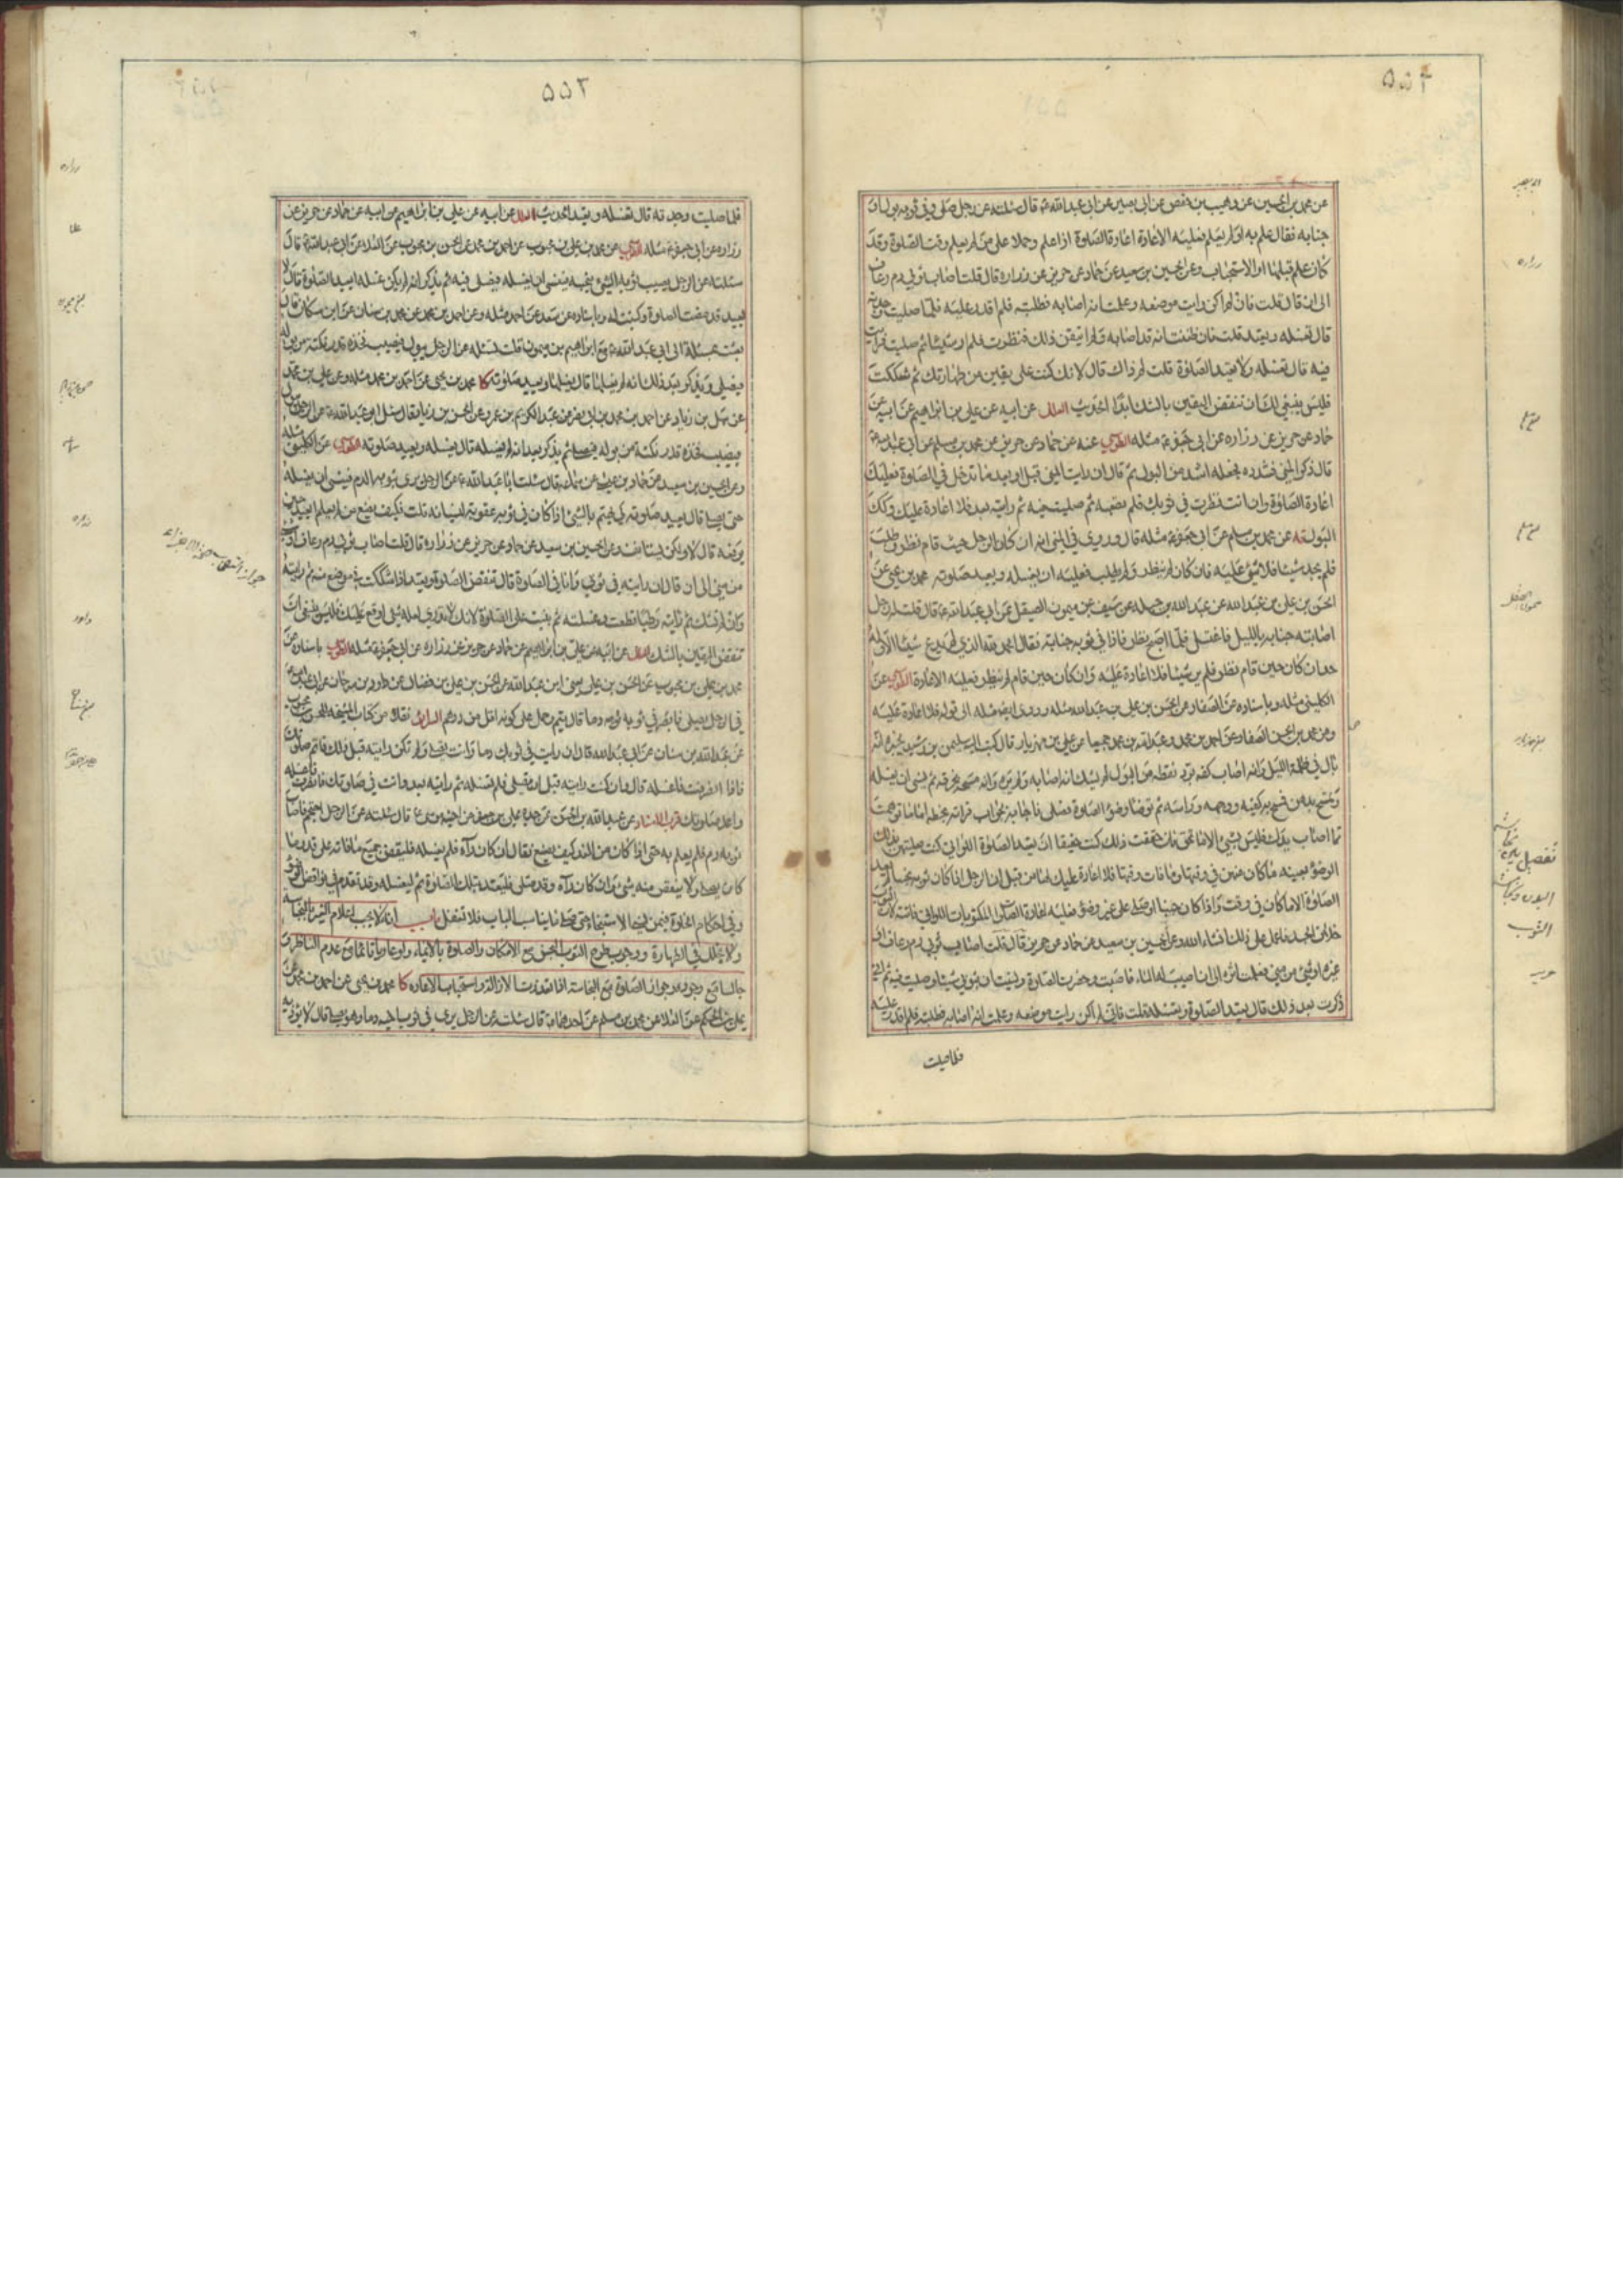 ٥٥٢
عن محمد بن الحسين عن وهيب بن حفص عن ابى بصير عن ابى عبد الله ع قال سئلته عن رجل صلى وفى ثوبه بول او
جنابه فقال علم به او لم يعلم فعليه الاعادة اعادة الصلوة اذا علم وحملا على من لم يعلم وقت الصلوة وقد
كان علم قبلها او الاستحباب وعن الحسين بن سعيد عن حماد عن حريز عن زراره قال قلت اصاب ثوبى دم رعاف
الى ان قال قلت فان لم اكن رايت موضعه وعلمت انه اصابه فطلبته فلم اقدر عليه فلما صليت وجدته
قال تغسله وتعيد قلت فان ظننت انه قد اصابه ولم اتيقن ذلك فنظرت فلم ار شيئا ثم صليت فرايت
فيه قال تغسله ولا تعيد الصلوة قلت لم ذاك قال لانك كنت على يقين من طهارتك ثم شككت
فليس ينبغى لك ان تنقض اليقين بالشك ابدا الحديث العلل عن ابيه عن على بن ابراهيم عن ابيه عن
حماد عن حريز عن زراره عن ابى جعفر ع مثله الطوسى عنه عن حماد عن حريز عن محمد بن مسلم عن ابى عبد الله ع
قال ذكر المنى فشدده فجعله اشد من البول ثم قال ان رايت المنى قبل او بعد ما تدخل فى الصلوة فعليك
اعادة الصلوة وان انت نظرت فى ثوبك فلم تصبه ثم صليت فيه ثم رايته بعد فلا اعادة عليك وكك
البول يه عن محمد بن مسلم عن ابى جعفر ع مثله قال وروى فى المنى انه ان كان الرجل حيث قام نظر وطلب
فلم يجد شيئا فلا شئ عليه فان كان لم ينظر ولم يطلب فعليه ان يغسله ويعيد صلوته محمد بن يحيى عن
الحسن بن على بن عبد الله عن عبد الله بن جبله عن سيف عن ميمون الصيقل عن ابى عبد الله ع قال قلت له رجل
اصابته جنابه بالليل فاغتسل فلما اصبح نظر فاذا فى ثوبه جنابة فقال الحمد لله الذى لم يدع شيئا الا وله
حد ان كان حين قام نظر فلم ير شيئا فلا اعادة عليه وان كان حين قام لم ينظر فعليه الاعادة الطوسى عن
الكلينى مثله وباسناده عن الصفار عن الحسن بن على بن عبد الله مثله وروى ايضا مثله الى قوله فلا اعادة عليه
وعن محمد بن الحسن الصفار عن احمد بن محمد وعبد الله بن محمد جميعا عن على بن مهزيار قال كتب اليه سليمن بن رشيد يخبره انه
بال فى ظلمة الليل وانه اصاب كفه برد نقطه من البول لم يشك انه اصابه ولم يره وانه مسحه بخرقه ثم نسى ان يغسله
وتمسح بدهن فمسح به كفيه ووجهه وراسه ثم توضا وضوء الصلوة فصلى فاجابه بجواب قراته بخطه اما ما توهمت
مما اصاب يدك فليس بشئ الا ما تحقق فان حققت ذلك كنت حقيقا ان تعيد الصلوة اللواتى كنت صليتهن بذلك
الوضوء بعينه ما كان منهن فى وقتها وما فات وقتها فلا اعادة عليك لها من قبل ان الرجل اذا كان ثوبه نجسا لم يعد
الصلوة الا ما كان فى وقت واذا كان جنبا او صلى على غير وضوء فعليه اعادة الصلوات المكتوبات اللواتى فاتته لان الثوب
خلاف الجسد فاعمل على ذلك انشاء الله وعن الحسين بن سعيد عن حماد عن حريز قال قلت اصاب ثوبى دم رعاف او
غيره او شئ من منى فعلمت اثره الى ان اصيب له الماء فاصبت وحضرت الصلوة ونسيت ان بثوبى شيئا وصليت فيه ثم انى
ذكرت بعد ذلك قال تعيد الصلوة وتغسله قلت فانى لم اكن رايت موضعه وعلمت انه اصابه فطلبته فلم اقدر عليه
فلما صليت
ابو بصير
زراره
ميمون الصيقل
تفصيل بين نجاسة
البدن ونجاسة
الثوب
حريز
٥٥٣
فلما صليت وجدته قال تغسله وتعيد الحديث العلل عن ابيه عن على بن ابراهيم عن ابيه عن حماد عن حريز عن
زراره عن ابى جعفر ع مثله الطوسى عن محمد بن على بن محبوب عن احمد بن محمد عن الحسن بن محبوب عن العلا عن ابى عبد الله ع قال
سئلته عن الرجل يصيب ثوبه الشئ ينجسه فينسى ان يغسله فيصلى فيه ثم يذكر انه لم يكن غسله ايعيد الصلوة قال لا
يعيد قد مضت الصلوة وكتبت له وباسناده عن سعد عن احمد مثله وعن احمد بن محمد عن محمد بن سنان عن ابن مسكان قال
بعثت بمسئلة الى ابى عبد الله ع مع ابراهيم بن ميمون قلت تسئله عن الرجل يبول فيصيب فخذه قدر نكتة من بوله
فيصلى ويذكر بعد ذلك انه لم يغسلها قال يغسلها ويعيد صلوته كا محمد بن يحيى عن احمد بن محمد مثله وعن على بن محمد
عن سهل بن زياد عن احمد بن محمد بن ابى نصر عن عبد الكريم بن عمرو عن الحسن بن زياد قال سئل ابو عبد الله ع عن الرجل يبول
فيصيب فخذه قدر نكتة من بوله فيصلى ثم يذكر بعد انه لم يغسله قال يغسله ويعيد صلوته الطوسى عن الكلينى مثله
وعن الحسين بن سعيد عن حماد بن عيسى عن سماعه قال سئلت ابا عبد الله ع عن الرجل يرى بثوبه الدم فينسى ان يغسله
حتى يصلى قال يعيد صلوته كى يهتم بالشئ اذا كان فى ثوبه عقوبة لنسيانه قلت فكيف يصنع من لم يعلم ايعيد حين
يرفعه قال لا ولكن يستانف وعن الحسين بن سعيد عن حماد عن حريز عن زراره قال قلت اصاب ثوبى دم رعاف او شئ
من منى الى ان قال ان رايته فى ثوبى وانا فى الصلوة قال تنقض الصلوة وتعيد اذا شككت فى موضع منه ثم رايته
وان لم تشك ثم رايته رطبا قطعت وغسلته ثم بنيت على الصلوة لانك لا تدرى لعله شئ اوقع عليك فليس ينبغى ان
تنقض اليقين بالشك العلل عن ابيه عن على بن ابراهيم عن حماد عن حريز عن زراره عن ابى جعفر ع مثله الطوسى باسناده عن
محمد بن على بن محبوب عن الحسن بن على يعنى ابن عبد الله عن الحسن بن على بن فضال عن داود بن سرحان عن ابى عبد الله ع
فى الرجل يصلى فابصر فى ثوبه دما قال يتم وحمل على كونه اقل من درهم السرائر نقلا من كتاب المشيخه للحسن بن محبوب
عن عبد الله بن سنان عن ابى عبد الله قال ان رايت فى ثوبك دما وانت تصلى ولم تكن رايته قبل ذلك فاتم صلوتك
فاذا انصرفت فاغسله قال وان كنت رايته قبل ان تصلى فلم تغسله ثم رايته بعد وانت فى صلوتك فانصرف فاغسله
واعد صلوتك قرب الاسناد عن عبد الله بن الحسن عن جده على بن جعفر عن اخيه موسى ع قال سئلته عن الرجل احتجم فاصاب
ثوبه دم فلم يعلم به حتى اذا كان من الغد كيف يصنع فقال ان كان رآه فلم يغسله فليقض جميع ما فاته على قدر ما
كان يصلى ولا ينقص منه شئ وان كان رآه وقد صلى فليعتد بتلك الصلوة ثم ليغسله وقد تقدم فى نواقض الوضوء
وفى احكام الخلوة فيمن نسى الاستنجاء حتى صلى ما يناسب الباب فلا تغفل باب انه لا يجب اعلام الغير بالنجاسه
ولا بخلل فى الطهارة ووجوب طرح الثوب النجس مع الامكان والصلوة بالايماء ولو عاريا قائما مع عدم الناظر و
جالسا مع وجوده وجواز الصلوة مع النجاسة اذا تعذرت الازالة واستحباب الاعاده كا محمد بن يحيى عن احمد بن محمد عن
على بن الحكم عن العلا عن محمد بن مسلم عن احدهما ع قال سئلته عن الرجل يرى فى ثوب اخيه دما وهو يصلى قال لا يؤذنه
زراره
علا
زراره
داود